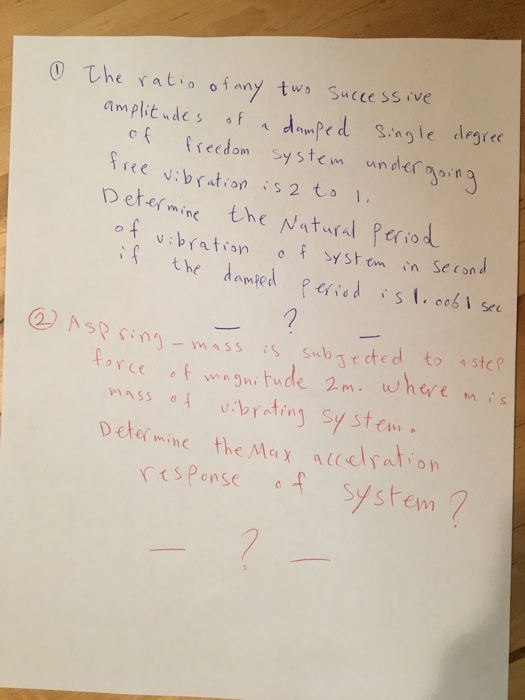 ① The ratio of any two successive
amplitudes of a damped single degree
of freedom system undergoing
free vibration is 2 to 1.
Determine the Natural period
of vibration of system in second
if the damped period is 1.0061 sec
— ? —
② A spring - mass is subjected to a step
force of magnitude 2m. where m is
mass of vibrating system.
Determine the Max accelration
response of system?
— ? —